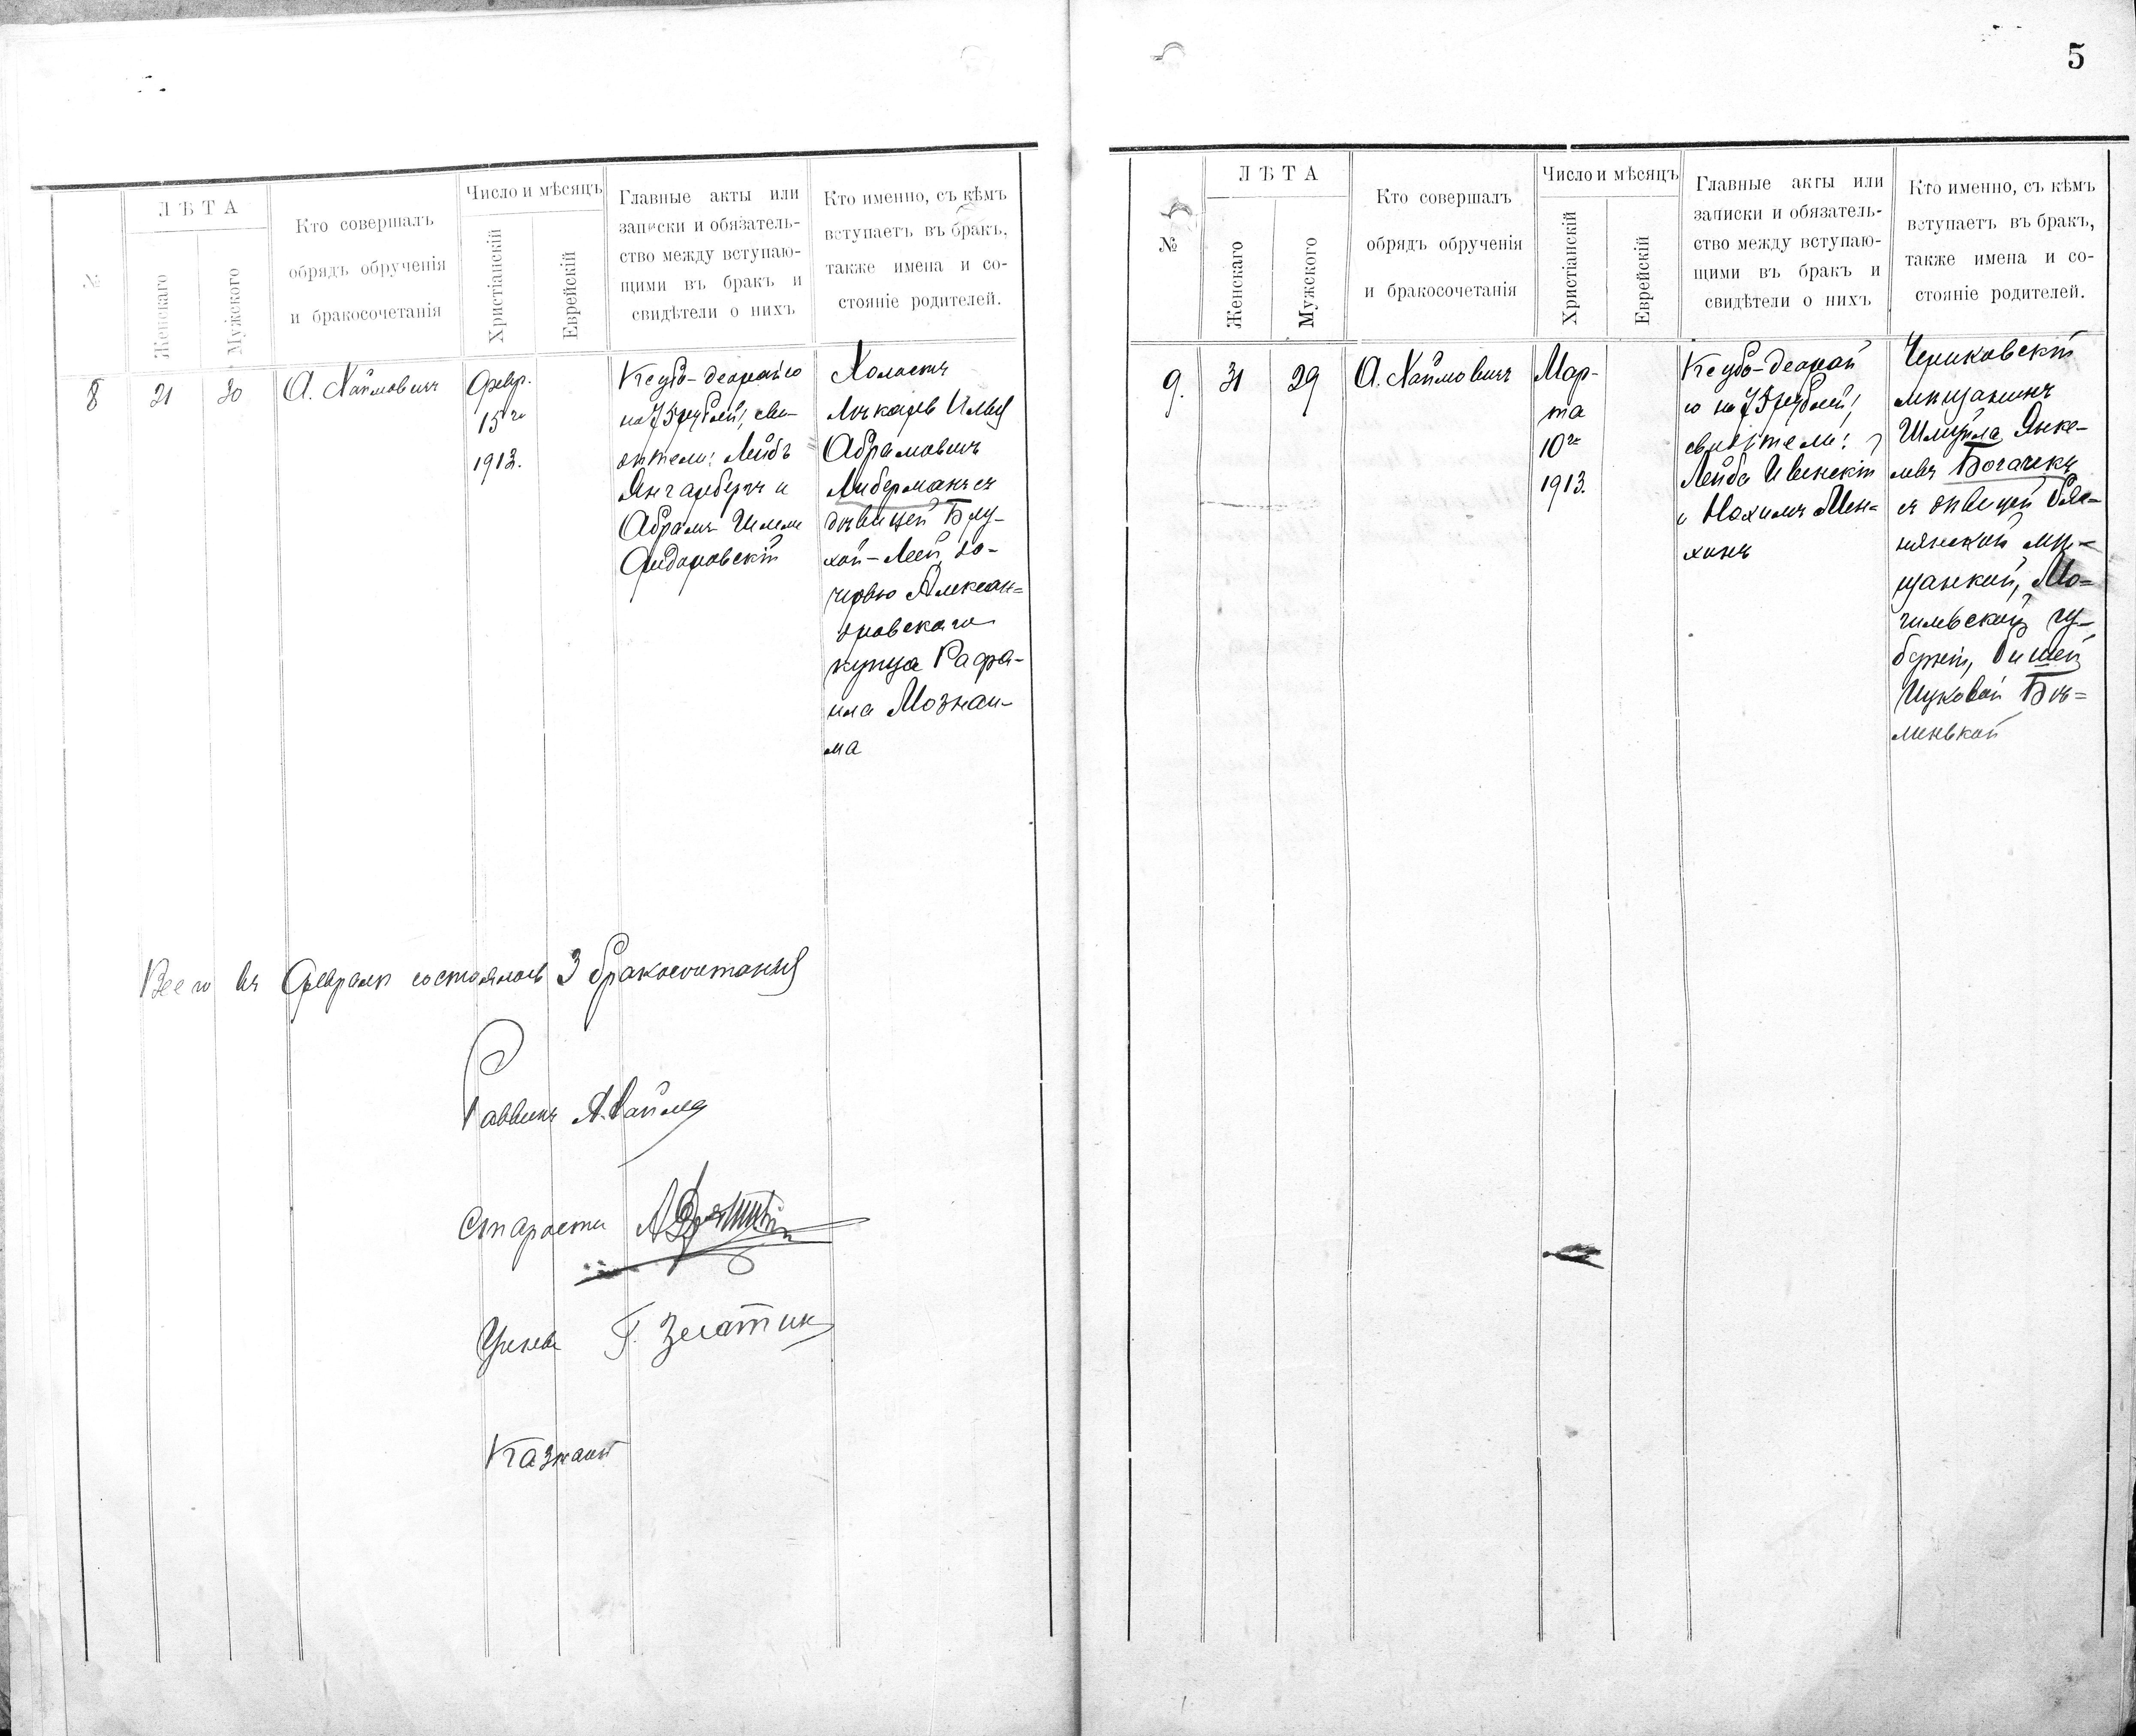 №
ЛѢТА
Женскаго
Мужского
Кто совершалъ
обрядъ обрученія
и бракосочетанія
Число и мѣсяцъ
Христіанскій
Еврейскій
Главные акты или
записки и обязатель-
ство между вступаю-
щими въ бракъ и
свидѣтели о нихъ
Кто именно, съ кѣмъ
вступаетъ въ бракъ,
также имена и со-
стояніе родителей.
8
21
30
А. Хаймовичъ
Февр.
15го
1913.
на 75 рублей; сви-
дѣтели: Лейбъ
Янгарберъ и
Абрамъ
Холостъ
Лѣкарь Илья
Абрамовичъ
Либерманъ съ
дѣвицей Блу-
хой-Леей, до-
черью Алексан-
дровскаго
купца Рафа-
ила Мознаи-
ма
Всего въ Февралѣ состоялось 3 бракосочетанія
Раввинъ А. Хаймо
Староста
Учены Г.
Казначей
5
№
ЛѢТА
Женскаго
Мужского
Кто совершалъ
обрядъ обрученія
и бракосочетанія
Число и мѣсяцъ
Христіанскій
Еврейскій
Главные акты или
записки и обязатель-
ство между вступаю-
щими въ бракъ и
свидѣтели о нихъ
Кто именно, съ кѣмъ
вступаетъ въ бракъ,
также имена и со-
стояніе родителей.
9.
31
29
А. Хаймовичъ
Мар-
та
10го
1913.
ю на 75 рублей;
свидѣтели:
Лейба Ивенскій
и Нохимъ Мен-
хинъ
Чериковскій
мѣщанинъ
Шмуйла Янке-
левъ Богачекъ
съ дѣвицей
мѣ-
щанкой, Мо-
гилевской гу-
берніи,
Ицковой Бѣ-
ленькой